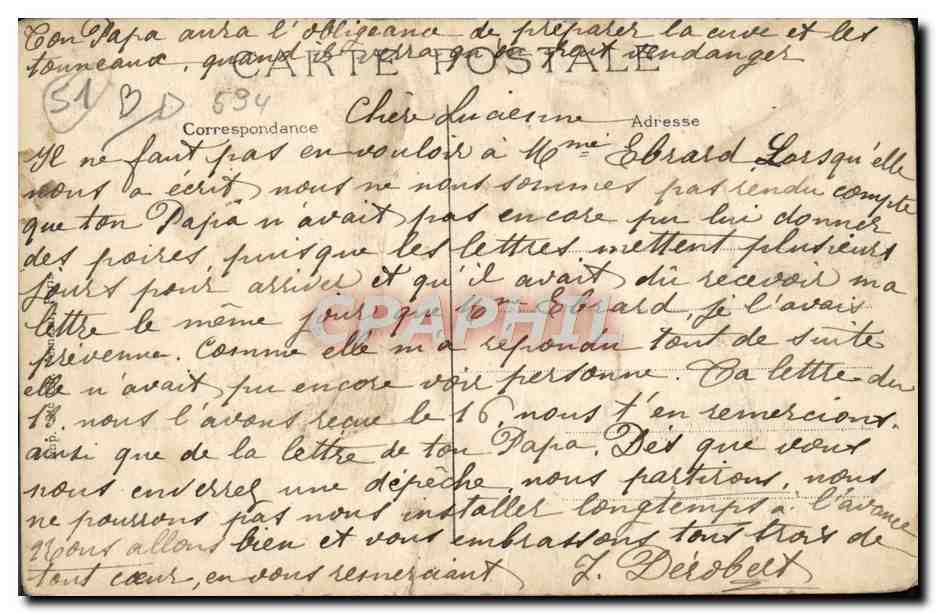 Ton Papa aura l'obligeance de préparer la cuve et les
tonneaux, quand il verra qu'on vendanger
CARTE POSTALE
51 B D 594
Chère Lucienne
Correspondance
Adresse
Il ne faut pas en vouloir à Mme Ebrard Lorsqu'elle
nous a écrit nous ne nous sommes pas rendu compte
que ton Papa n'avait pas encore pu lui donner
des poires puisque les lettres mettent plusieurs
jours pour arriver et qu'il avait dû recevoir ma
lettre le même jour que Mme Ebrard, je l'avais
CPAPHIL
prévenue. Comme elle m'a répondu tout de suite
elle n'avait pu encore voir personne. Ta lettre du
13, nous l'avons reçue le 16, nous t'en remercions.
ainsi que de la lettre de ton Papa. Dès que vous
nous enverrez une dépêche, nous partirons, nous
ne pourrons pas nous installer longtemps à l'avance
Nous allons bien et vous embrassons tous trois de
tout cœur, en vous remerciant J. Dérobert